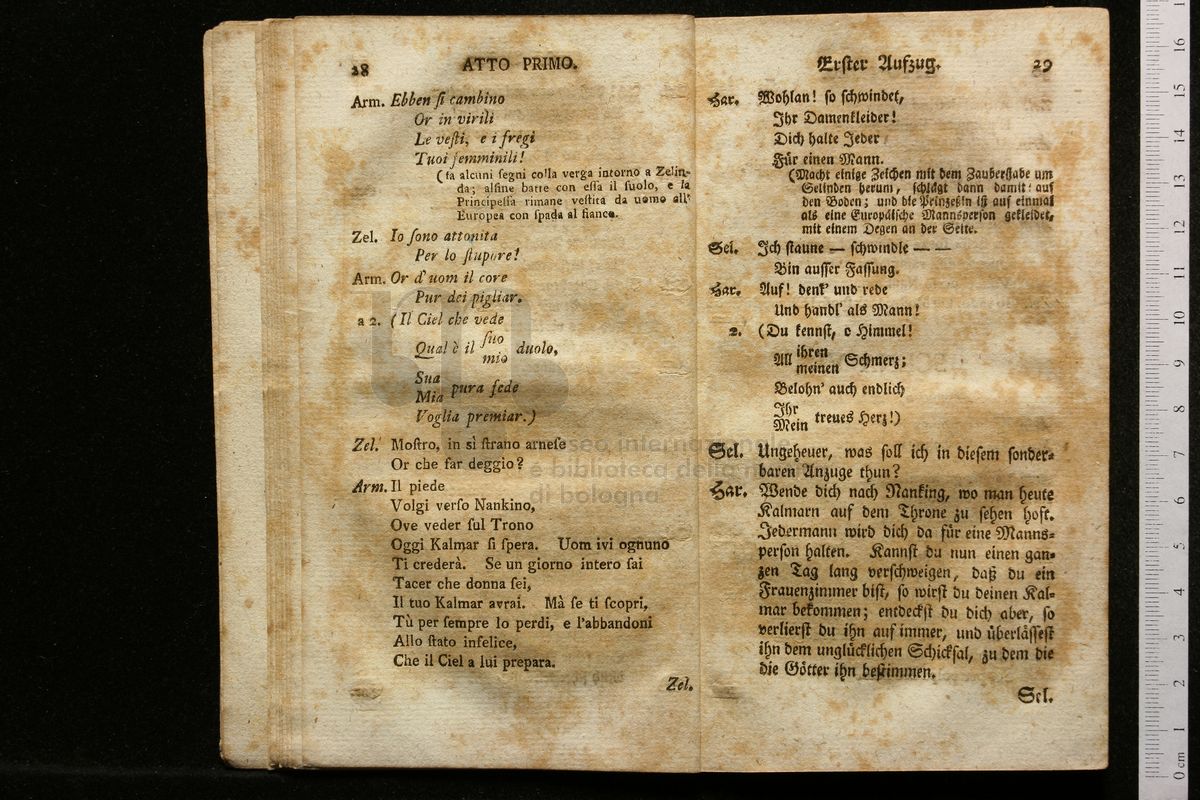 28 ATTO PRIMO.
Arm. Ebben ſi cambino
Or in virili
Le veſti, e i fregi
Tuoi femminili!
(fa alcuni ſegni colla verga intorno a Zelin-
da; alfine batte con eſſa il ſuolo, e la
Principeſſa rimane veſtita da uomo all'
Europea con ſpada al fianco.
Zel. Io ſono attonita
Per lo ſtupore!
Arm. Or d'uom il core
Pur dei pigliar.
a 2. (Il Ciel che vede
Qual è il ſuo
mio duolo,
Sua
Mia pura fede
Voglia premiar.)
Zel. Moſtro, in sì ſtrano arneſe
Or che far deggio?
Arm. Il piede
Volgi verſo Nankino,
Ove veder ſul Trono
Oggi Kalmar ſi ſpera. Uom ivi ognuno
Ti crederà. Se un giorno intero ſai
Tacer che donna ſei,
Il tuo Kalmar avrai. Mà ſe ti ſcopri,
Tù per ſempre lo perdi, e l'abbandoni
Allo ſtato infelice,
Che il Ciel a lui prepara.
Zel.
Erſter Aufzug. 29
Har. Wohlan! ſo ſchwindet,
Ihr Damenkleider!
Dich halte Jeder
Für einen Mann.
(Macht einige Zeichen mit dem Zauberſtabe um
Selinden herum, ſchlägt dann damit auf
den Boden; und die Prinzeßin iſt auf einmal
als eine Europäiſche Mannsperſon gekleidet,
mit einem Degen an der Seite.
Sel. Ich ſtaune — ſchwindle — —
Bin auſſer Faſſung.
Har. Auf! denk' und rede
Und handl' als Mann!
2. (Du kennſt, o Himmel!
All ihren
meinen Schmerz;
Belohn' auch endlich
Ihr
Mein treues Herz!)
Sel. Ungeheuer, was ſoll ich in dieſem ſonder-
baren Anzuge thun?
Har. Wende dich nach Nanking, wo man heute
Kalmarn auf dem Throne zu ſehen hoft.
Jedermann wird dich da für eine Manns-
perſon halten. Kannſt du nun einen gan-
zen Tag lang verſchweigen, daß du ein
Frauenzimmer biſt, ſo wirſt du deinen Kal-
mar bekommen; entdeckſt du dich aber, ſo
verlierſt du ihn auf immer, und überläſſeſt
ihn dem unglücklichen Schickſal, zu dem die
die Götter ihn beſtimmen.
Sel.
museo internazionale
e biblioteca della m
di bologna
0 cm 1 2 3 4 5 6 7 8 9 10 11 12 13 14 15 16